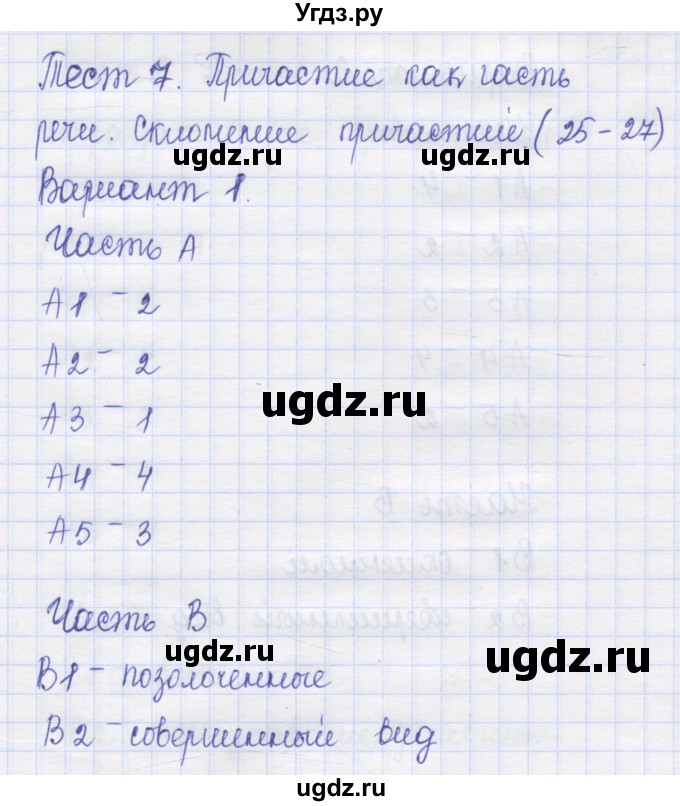 Угдз.ру
Тест 7. Причастие как часть
речи. Склонение причастий (25-27)
ugdz.ru ugdz.ru
Вариант 1.
Часть А
А1 - 2
А2 - 2
А3 - 1
ugdz.ru
А4 - 4
А5 - 3
Часть В
ugdz.ru ugdz.ru
В1 - позолоченные
В2 - совершенный вид
ugdz.ru